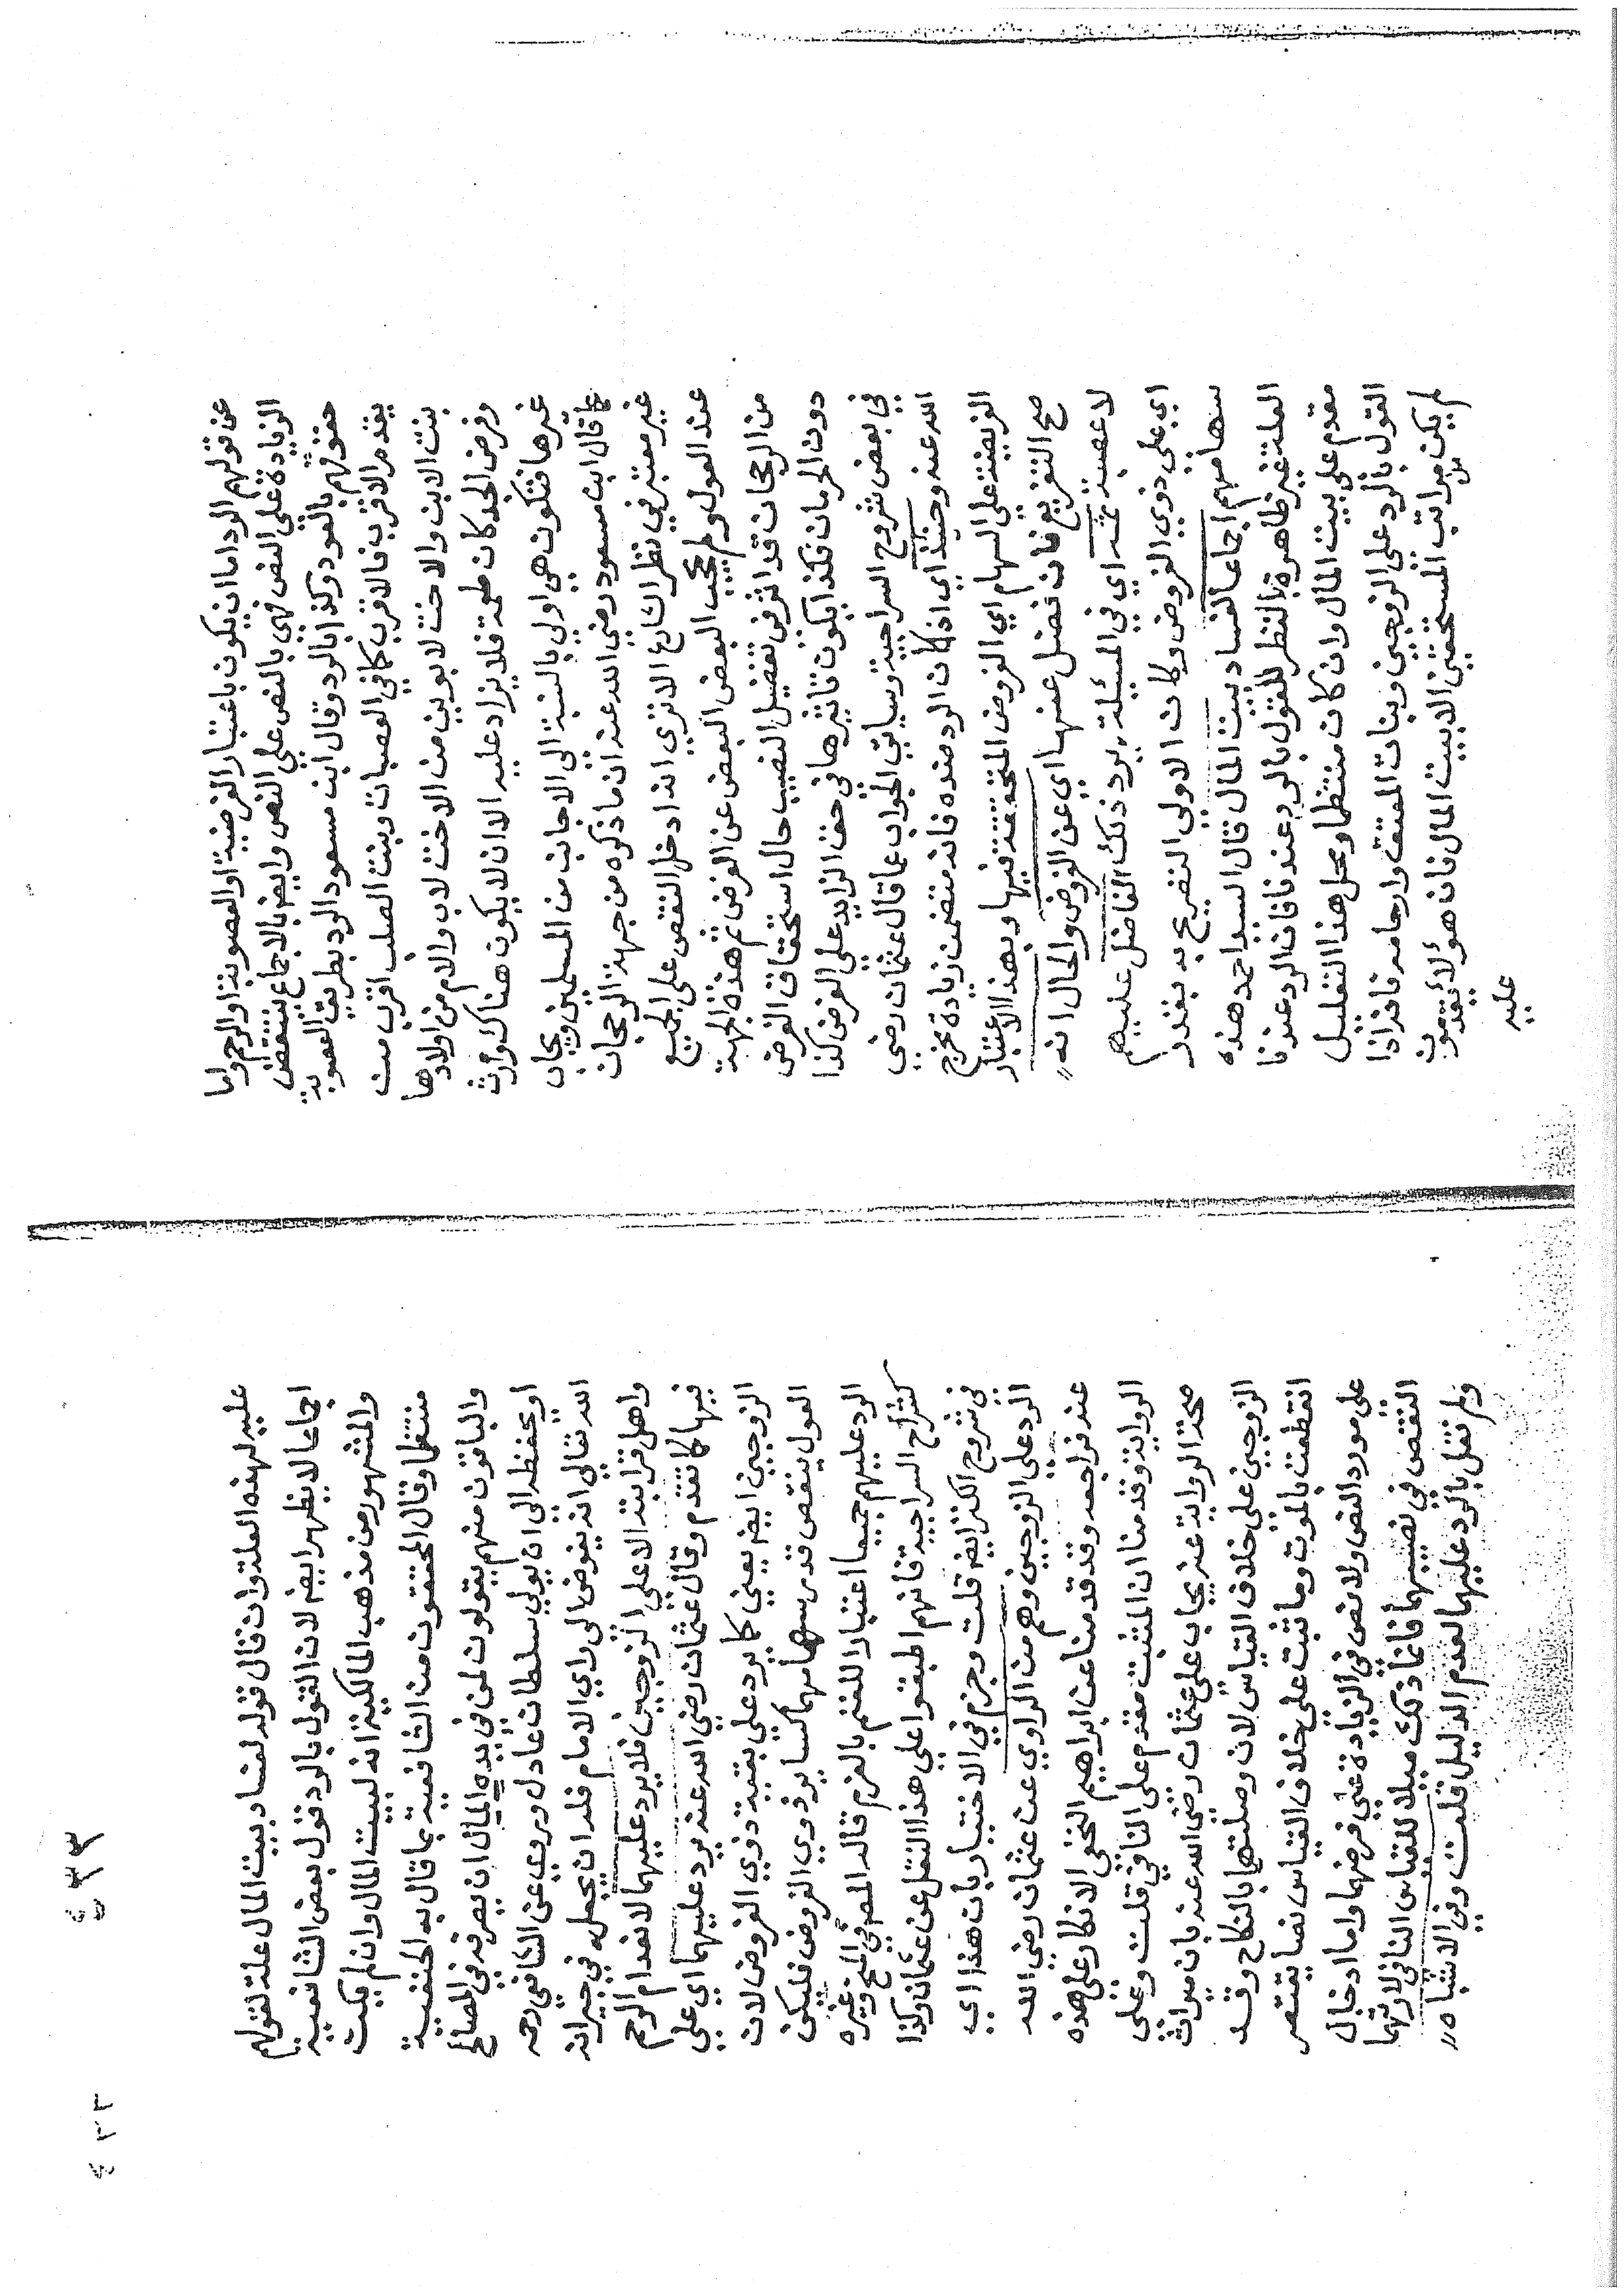 عن قولهم الرد اما ان يكون باعتبار الفرضية او العصوبة او الرحم واما
الزيادة على النص فهي بالنص على النص وايضا بالاجماع ينتقض
حقوقهم بالعود وكذا بالرد وقال ابن مسعود الرد بطريق العصوبة
يقدم الاقرب فالاقرب كما في العصبات وبنت الصلب اقرب من
بنت الابن والاخت لابوين من الاخت لاب والام من اولادها
وفرض الجد كان طعمة فلا يزاد عليه الا ان لا يكون هناك وارث
غيرها فتكون هي اولى بالنسبة الى الاجانب من المسلمين ويجاب
عما قال ابن مسعود رضي الله عنه ان ما ذكره من جهة الرجحان
غير معتبر في نظر الشارع الا ترى انه ادخل النقص على الجميع
عند العول ولم يحجب البعض البعض عن الفرض ثم هذه الجهة
من الرجحان قد اثر في تفضيل النصيب حال استحقاق الفرض
دون الحرمان فكذا يكون تاثيرها في حق الزايد على الفرض كذا
في بعض شروح السراجية وسياتي الجواب عما قال عثمان رضي
الله عنه وحينئذ اي اذ كان الرد ضده فانه متضمن زيادة مخرج
الفريضة على السهام اي الفروض المتحققة فيها وبهذا الاعتبار
صح التفريع فان فضل عنها اي عن الفروض والحال انه
لا عصبة ثمه اي في المسئلة يرد ذلك الفاضل عليهم
اي على ذوي الفروض وكان الاولى التفريع به بقدر
سهامهم اجماعا لفساد بيت المال قال السيد احمد هذه
العلة غير ظاهرة بالنظر للقول بالرد عندنا فان الرد عندنا
مقدم على بيت المال وان كان منتظما ومحل هذا التعليل
القول بالرد على الزوجين وبنات المعتق وارحامه فافرادا
لم يكن من مراتب المستحقين الا بيت المال فان هولاء يقدمون
عليه
عليه لهذه العلة وان قال قوله لفساد بيت المال علة لقولهم
اجماعا لا يظهر ايضا لان القول بالرد قول بعض الشافعية
والمشهور من مذهب المالكية انه لبيت المال وان لم يكن
منتظما وقال المحققون من الشافعية بما قال به الحنفية
والباقون منهم يقولون لمن في يده المال ان يصرفه في المصالح
او يحفظه الى ان يولي سلطان عادل وروي عن الشافعي رحمه
الله تعالى انه يفوض الى راي الامام فله ان يجعله في جيرانه
واهل قرابته الا على الزوجين فلا يرد عليهما لانعدام الرحم
فيهما كما تقدم وقال عثمان رضي الله عنه يرد عليهما اي على
الزوجين ايضا يعني كما يرد على بقية ذوي الفروض لان
العول ينقص قدر سهامهما كساير ذوي الفروض فليكن
الرد عليهم جميعا اعتبارا للغنم بالغرم قاله المص في المنح وغيره
كشراح السراجية فانهم اطبقوا على هذا النقل عن عثمان وكذا
في شروح الكنز ايضا قلت وجزم في الاختيار بان هذا اي
الرد على الزوجين وهم من الراوي عن عثمان رضي الله
عنه فراجعه وقد قدمنا عن ابراهيم النخعي الانكار على هذه
الرواية وقدمنا ان المثبت مقدم على النافي قلت وعلى
صحة الرواية عنه يجاب على عثمان رضي الله عنه بان ميراث
الزوجين على خلاف القياس لان وصلتهما بالنكاح وقد
انقطعت بالموت وما ثبت على خلاف القياس نصا يقتصر
على مورد النص ولا نص في الزيادة على فرضهما واما ادخال
النقص في نصيبهما فانما ذلك ميلا للقياس النافي لارثهما
ولم نقل بالرد عليهما لعدم الدليل قلت وفي الاشباه
٤٣٣
٤٣٣